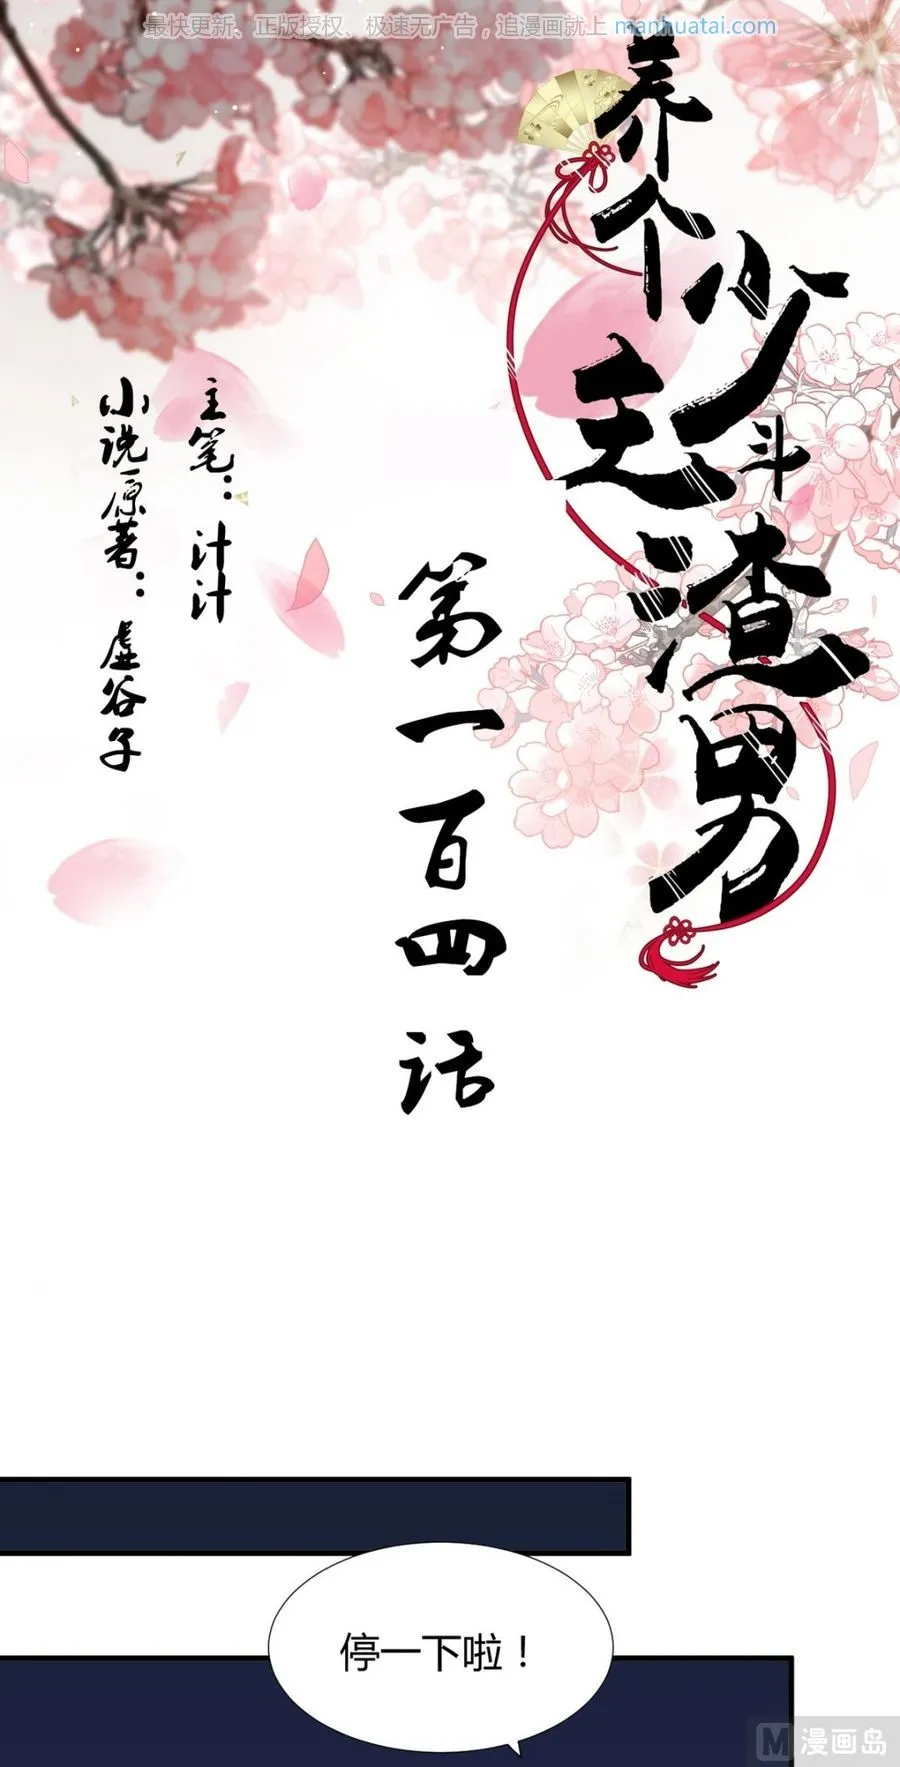 最快更新、正版授权、极速无广告，追漫画就上 manhuatai.com
养个少主斗渣男
第一百四话
主笔：汁汁
小说原著：虚谷子
停一下啦！
M 漫画岛